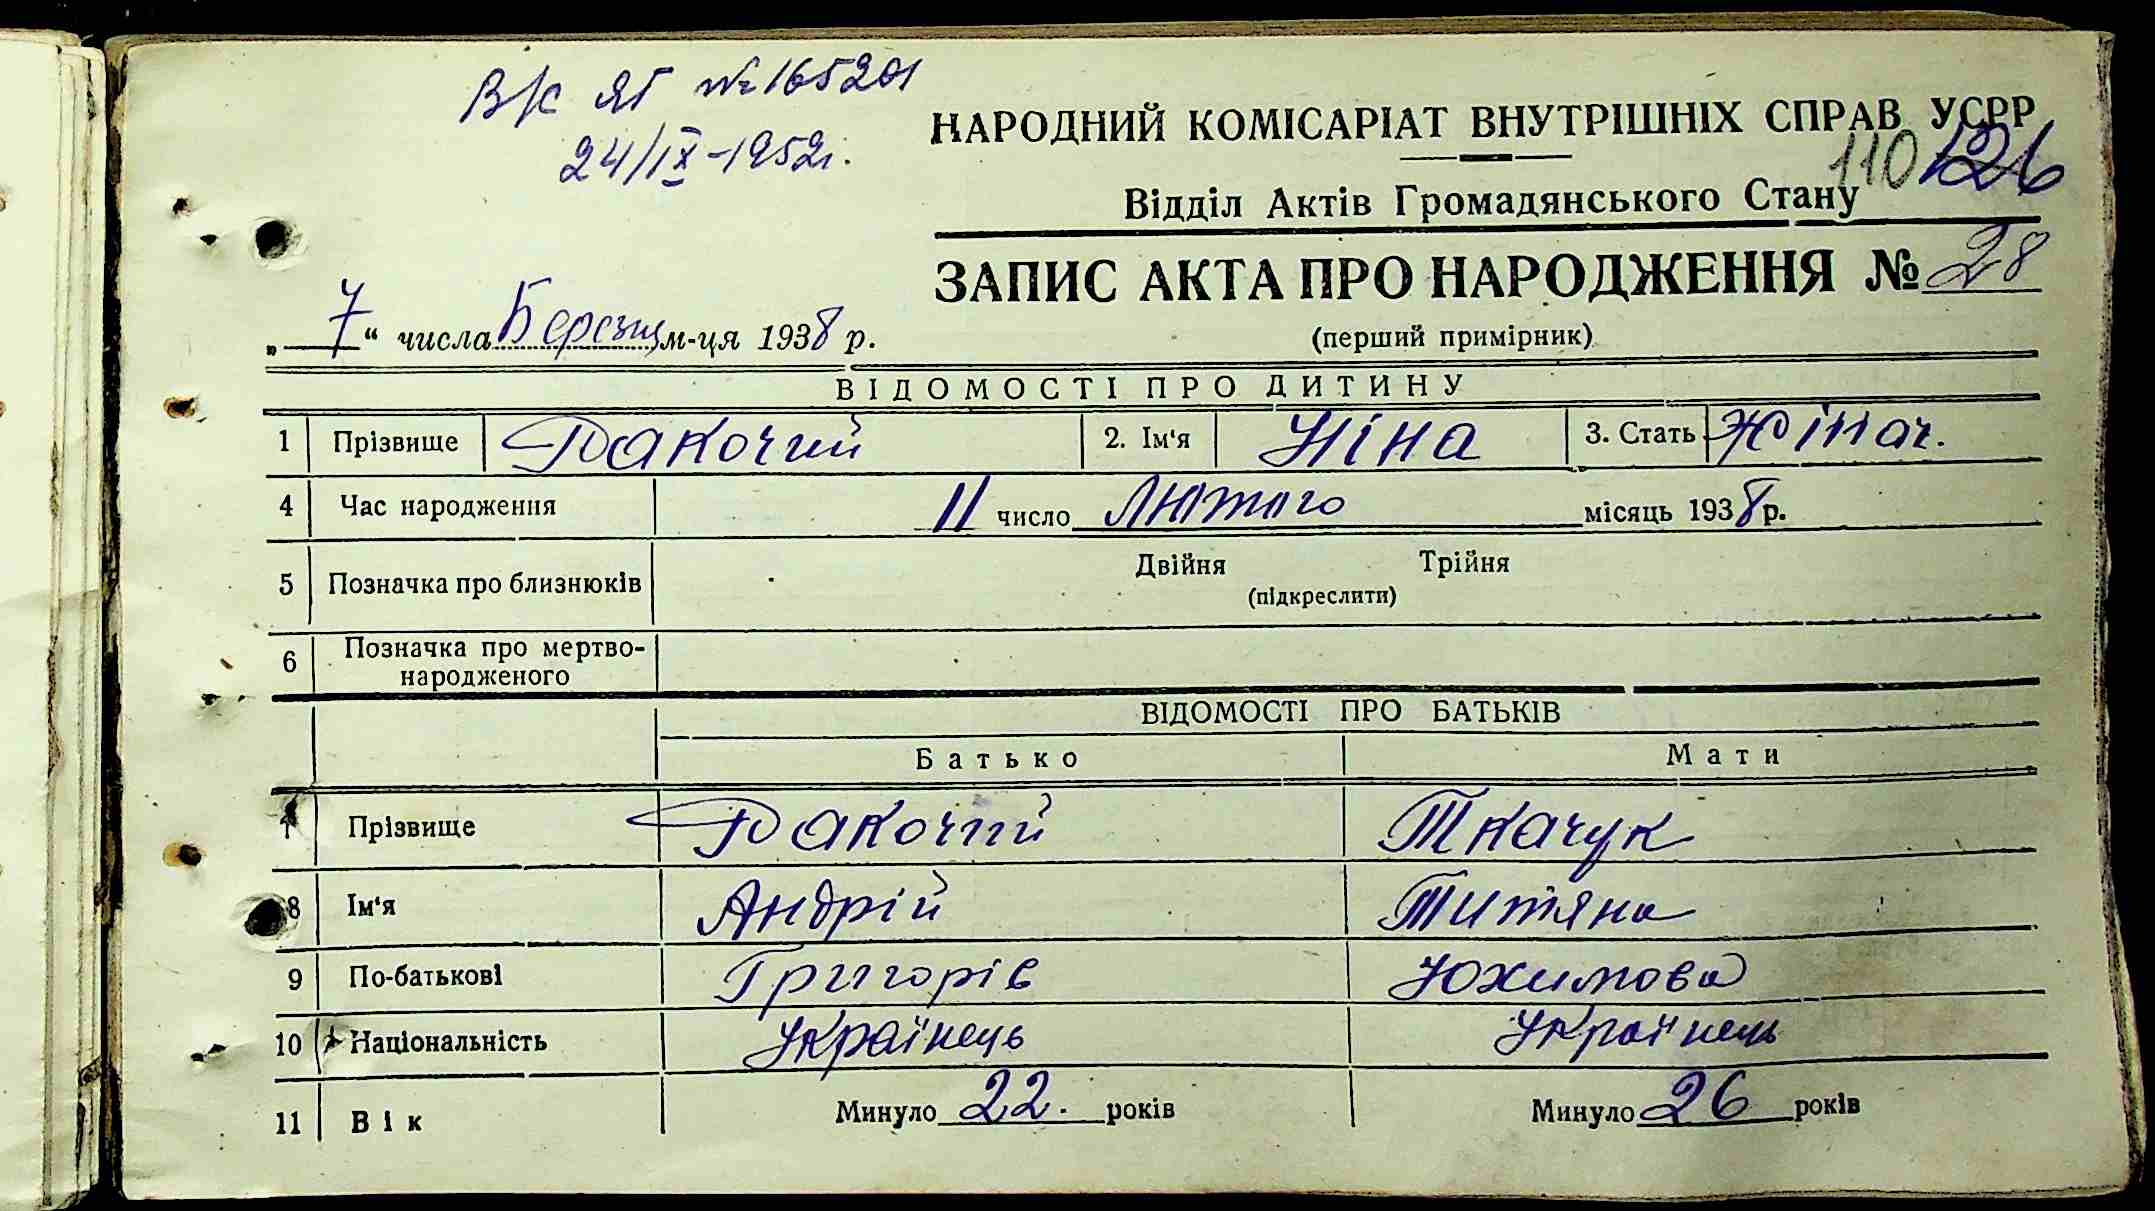 В/с ЯГ № 165201
24/IX-1952г.
НАРОДНИЙ КОМІСАРІАТ ВНУТРІШНІХ СПРАВ УСРР
110 126
Відділ Актів Громадянського Стану
ЗАПИС АКТА ПРО НАРОДЖЕННЯ № 28
„ 7 “ числа м-ця 1938 р.
(перший примірник)
ВІДОМОСТІ ПРО ДИТИНУ
1 Прізвище Ракочий 2. Ім'я Ніна 3. Стать Жіноч.
4 Час народження 11 число Лютого місяць 1938 р.
5 Позначка про близнюків Двійня Трійня
(підкреслити)
6 Позначка про мертво-
народженого
ВІДОМОСТІ ПРО БАТЬКІВ
Батько Мати
7 Прізвище Ракочий Ткачук
8 Ім'я Андрій Титяна
9 По-батькові Григорів Юхимова
10 Національність Українець Українець
11 Вік Минуло 22. років Минуло 26 років